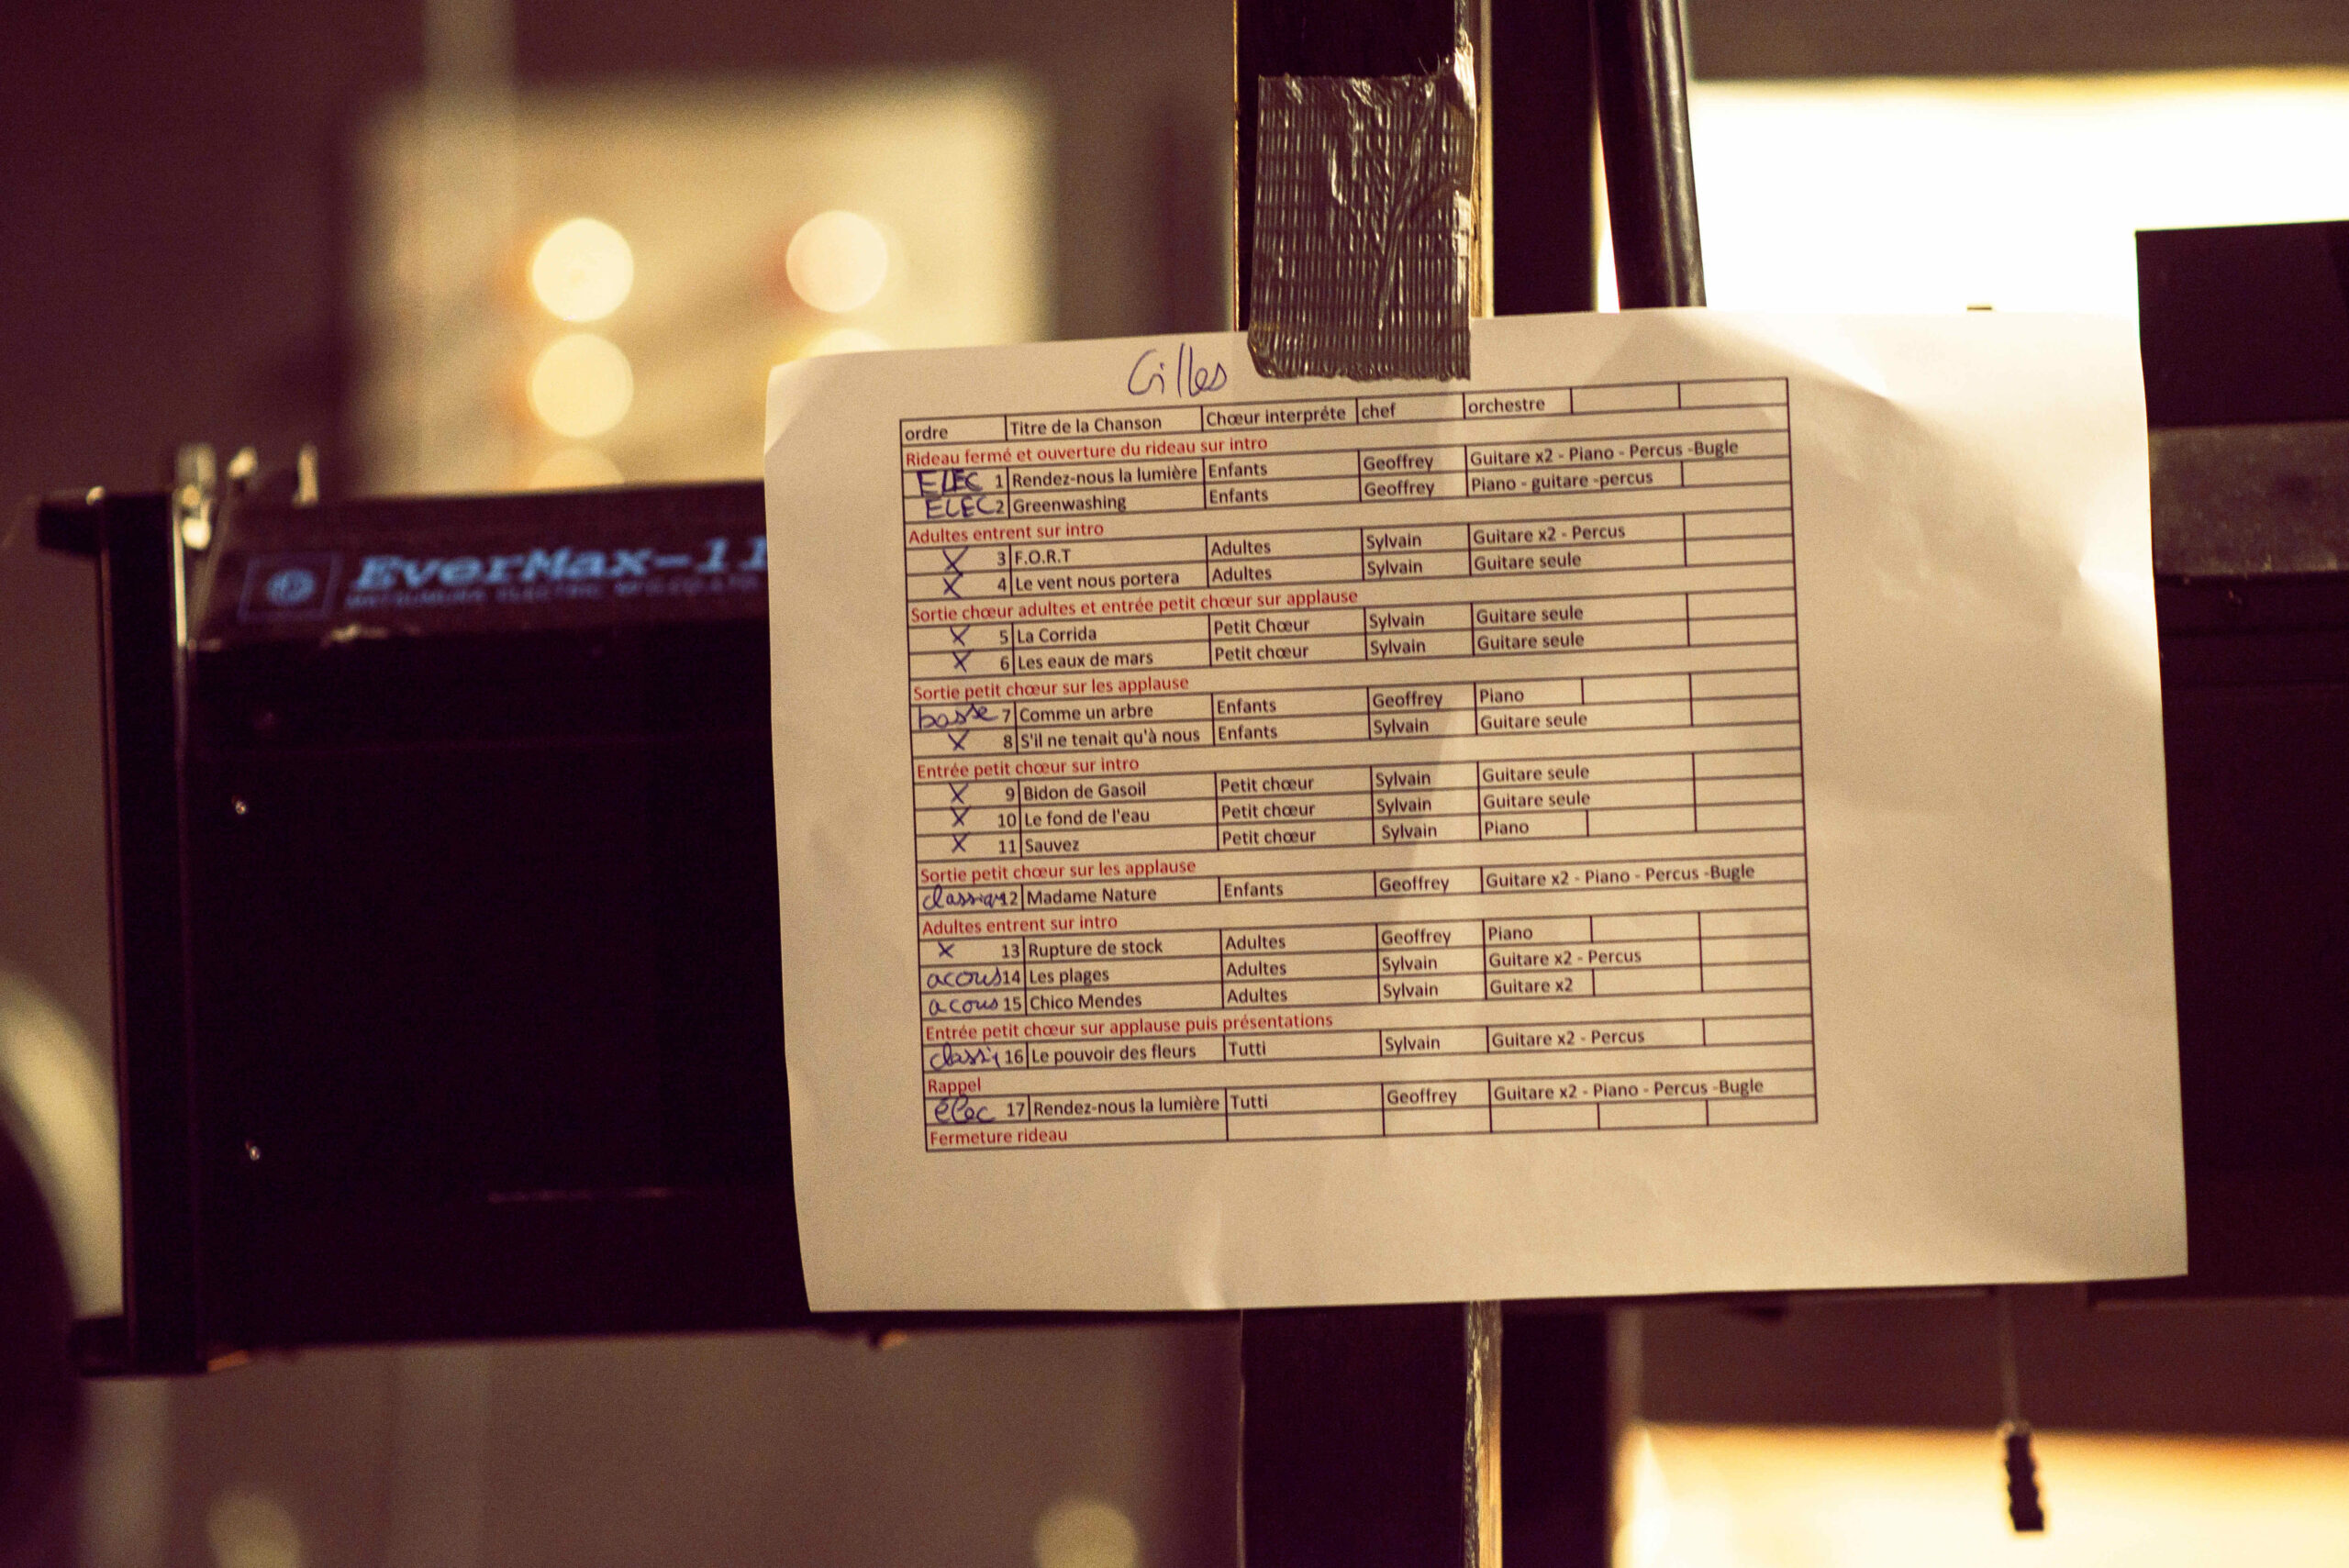 Gilles
ordre Titre de la Chanson Chœur interpréte chef orchestre
Rideau fermé et ouverture du rideau sur intro
ELEC 1 Rendez-nous la lumière Enfants Geoffrey Guitare x2 - Piano - Percus -Bugle
ELEC 2 Greenwashing Enfants Geoffrey Piano - guitare -percus
Adultes entrent sur intro
X 3 F.O.R.T Adultes Sylvain Guitare x2 - Percus
X 4 Le vent nous portera Adultes Sylvain Guitare seule
Sortie chœur adultes et entrée petit chœur sur applause
X 5 La Corrida Petit Chœur Sylvain Guitare seule
X 6 Les eaux de mars Petit chœur Sylvain Guitare seule
Sortie petit chœur sur les applause
basse 7 Comme un arbre Enfants Geoffrey Piano
X 8 S'il ne tenait qu'à nous Enfants Sylvain Guitare seule
Entrée petit chœur sur intro
X 9 Bidon de Gasoil Petit chœur Sylvain Guitare seule
X 10 Le fond de l'eau Petit chœur Sylvain Guitare seule
X 11 Sauvez Petit chœur Sylvain Piano
Sortie petit chœur sur les applause
classiq 12 Madame Nature Enfants Geoffrey Guitare x2 - Piano - Percus -Bugle
Adultes entrent sur intro
X 13 Rupture de stock Adultes Geoffrey Piano
acous 14 Les plages Adultes Sylvain Guitare x2 - Percus
acous 15 Chico Mendes Adultes Sylvain Guitare x2
Entrée petit chœur sur applause puis présentations
classi 16 Le pouvoir des fleurs Tutti Sylvain Guitare x2 - Percus
Rappel
élec 17 Rendez-nous la lumière Tutti Geoffrey Guitare x2 - Piano - Percus -Bugle
Fermeture rideau
EverMax-11